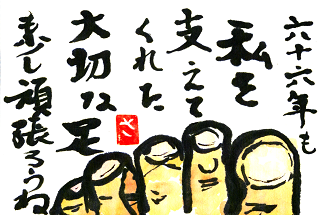 六十六年も
私を
支えて
くれた
大切な足
さ
もう少し頑張ろうね